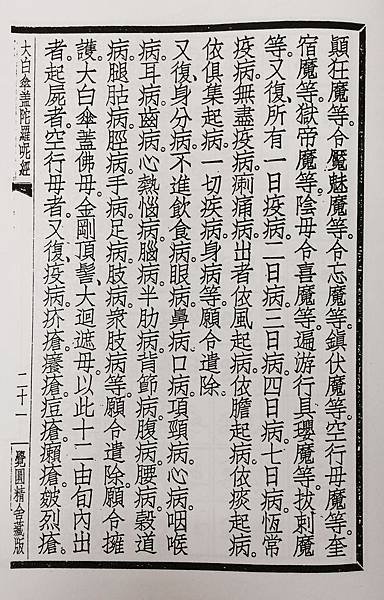 顛狂魔等。令魘魅魔等。令忘魔等。鎮伏魔等。空行母魔等。奎
宿魔等。獄帝魔等。陰母令喜魔等。遍游行具瓔魔等。拔刺魔
等。又復所有一日疫病。二日病。三日病。四日病。七日病。恆常
疫病。無盡疫病。痢痛病。出者依風起病。依膽起病。依痰起病。
依俱集起病。一切疾病。身病等願令遣除。
又復身分病。不進飲食病。眼病。鼻病。口病。項頸病。心病。咽喉
病。耳病。齒病。心熱惱病。腦病。半肋病。背節病。腹病。腰病。穀道
病。腿𦙶病。脛病。手病。足病。肢病。衆肢病等願令遣除。願令擁
護大白傘蓋佛母。金剛頂髻。大迴遮母。以此十二由旬內。出
者起屍者。空行母者。又復疫病。疥瘡。癢瘡。痘瘡。癩瘡。皴烈瘡。
大白傘蓋陀羅呪經
二十一
覺圓精舍藏版